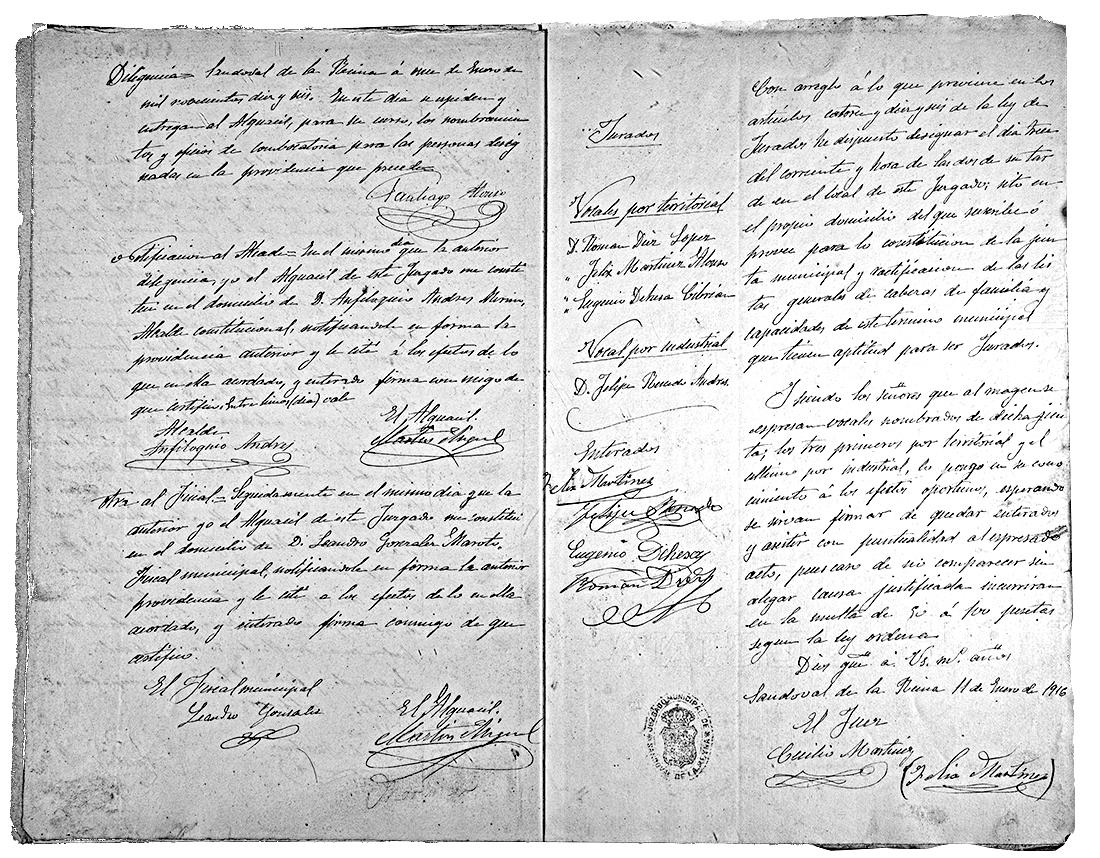 Diligencia = Sandoval de la Reina á once de Enero de
mil novecientos diez y seis. En este dia se expiden y
entregan al Alguacil, para su curso, los nombramien
tos y oficios de combocatoria para las personas desig
nadas en la providencia que precede
Santiago Alonso
Notificacion al Alcalde = En el mismo dia que la anterior
diligencia, yo el Alguacil de este Juzgado me constitui
en el domicilio de D. Anfiloquio Andres
Alcalde constitucional, notificandole en forma la
providencia anterior y le cité á los efectos de lo
que en ella acordado, y enterado firma con migo de
que certifico, Entre lineas (dia) vale
El Alguacil.
Alcalde
Martin Miguel
Anfiloquio Andres
Otra al Fiscal = Seguidamente en el mismo dia que la
anterior yo el Alguacil de este Juzgado me constitui
en el domicilio de D. Leandro Gonzalez
Fiscal municipal, notificandole en forma la anterior
providencia y le cité a los efectos de lo en ella
acordado, y enterado firma conmigo de que
certifico.
El Fiscal municipal
Leandro Gonzalez
El Alguacil.
Martin Miguel
Jurados
Vocales por territorial
D. Roman Diez Lopez
" Felix Martinez Alonso
" Eugenio Dehesa Cibrian
Vocal por industrial
D. Felipe Renedo Andres
Enterados
Felix Martinez
Felipe Renedo
Eugenio Dehesa
Roman Diez
JUZGADO MUNICIPAL DE SANDOVAL DE LA REYNA
Con arreglo á lo que previene en los
articulos catorce y diez y seis de la ley de
Jurados he dispuesto designar el dia trece
del corriente y hora de las dos de su tar
de en el local de este Juzgado; sito en
el propio domicilio del que suscribe ó
provee para la constitucion de la jun
ta municipal y rectificacion de las lis
tas generales de cabezas de familia y
capacidades de este termino municipal
que tienen aptitud para ser Jurados.
Y siendo los señores que al margen se
espresan vocales nombrados de dicha jun
ta; los tres primeros por territorial y el
ultimo por industrial, lo pongo en su cono
cimiento á los efectos oportunos, esperando
se sirvan firmar de quedar enterados
y asistir con puntualidad al espresado
acto, pues caso de no comparecer sin
alegar causa justificada incurriran
en la multa de 50 á 100 pesetas
segun la ley ordena
Dios gue á Vs. ms. años
Sandoval de la Reina 11 de Enero de 1916
El Juez
Cecilio Martinez
(Felix Martinez)